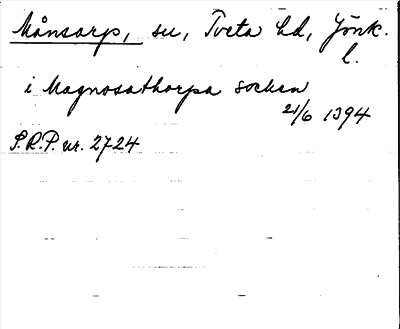 Månsarp, sn, Tveta hd, Jönk.
l.
i Magnosathorpa sochen
21/6 1394
S.R.P. nr. 2724